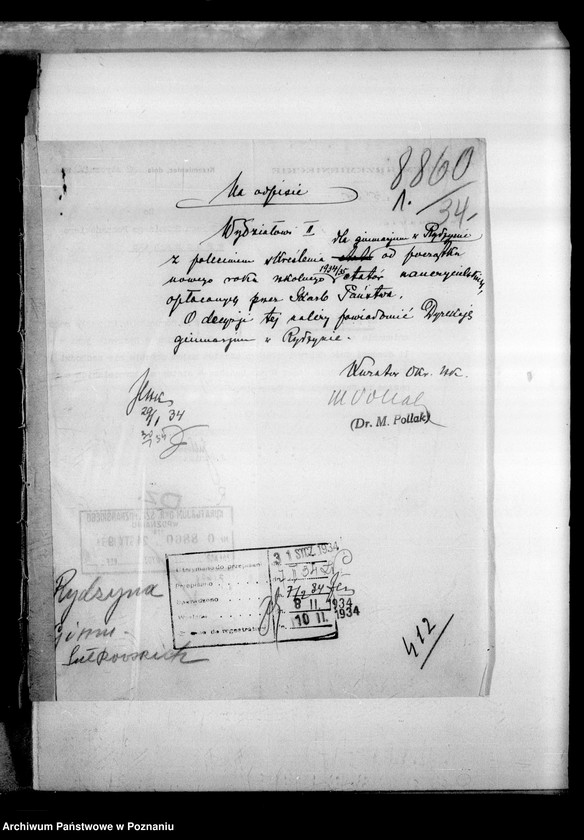 8860
1.
34.
Na odpisie
Wydziałowi II
dla gimnazjum w Rydzynie
z poleceniem skreślenia etatu od początku
nowego roku szkolnego 1934/35 etatów nauczycielskich,
opłacanych przez Skarb Państwa.
O decyzji tej należy powiadomić Dyrekcję
gimnazjum w Rydzynie.
Kurator Okr. Szk.
M Pollak
(Dr. M. Pollak)
29/I 34
Otrzymano do przepisania 31 STYCZ. 1934
Przepisano
7/2 34
8 II. 1934
10 II. 1934
Rydzyna
Gimn.
Sułkowskich
412
Archiwum Państwowe w Poznaniu